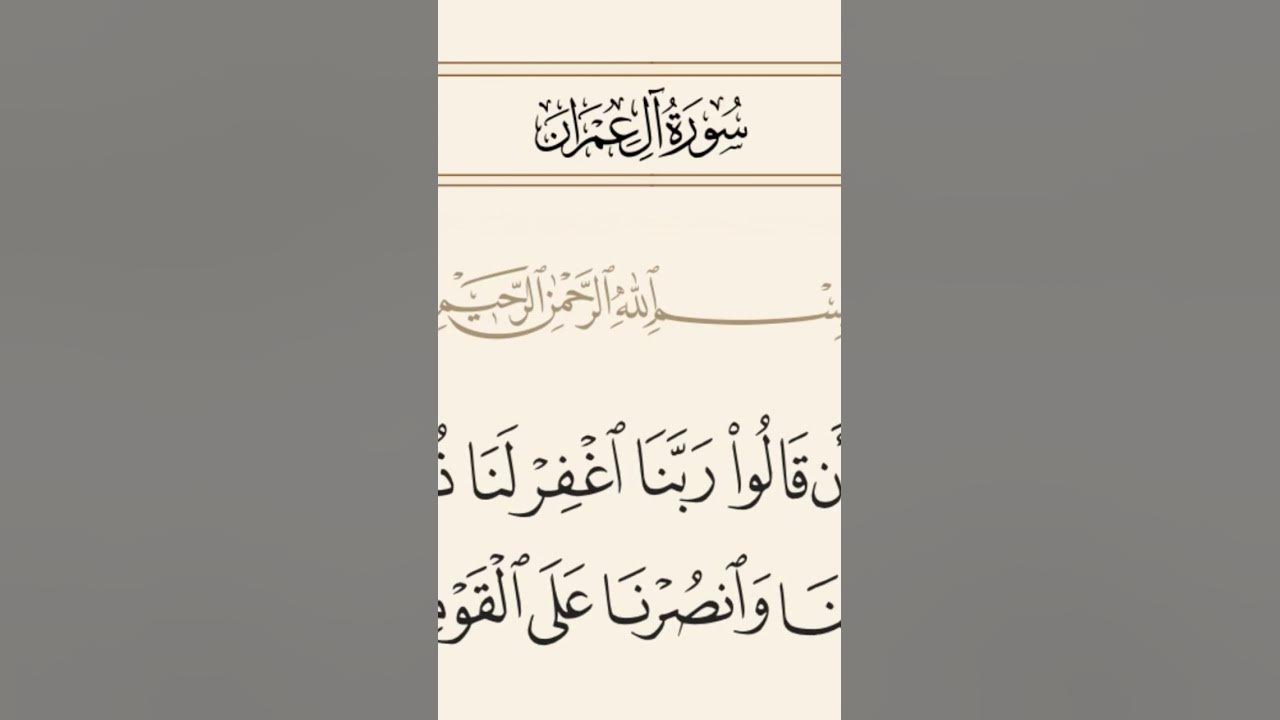 سُورَةُ آلِ عِمْرَانَ
بِسْمِ ٱللَّهِ ٱلرَّحْمَٰنِ ٱلرَّحِيمِ
قَالُوا۟ رَبَّنَا ٱغْفِرْ لَنَا
وَٱنصُرْنَا عَلَى ٱلْقَوْمِ